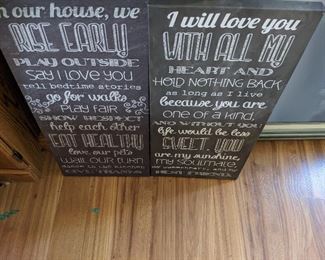 in our house, we
RISE EARLY
PLAY OUTSIDE
SAY I LOVE YOU
tell bedtime stories
go for walks
PLAY FAIR
SHOW RESPECT
help each other
EAT HEALTHY
love our pets
WAIT OUR TURN
GIVE THANKS
I will love you
WITH ALL MY
HEART AND
HOLD NOTHING BACK
as long as I live
because you are
one of a kind,
AND WITHOUT YOU
life would be less
SWEET. YOU
are my sunshine,
MY SOULMATE,
BEST FRIEND.